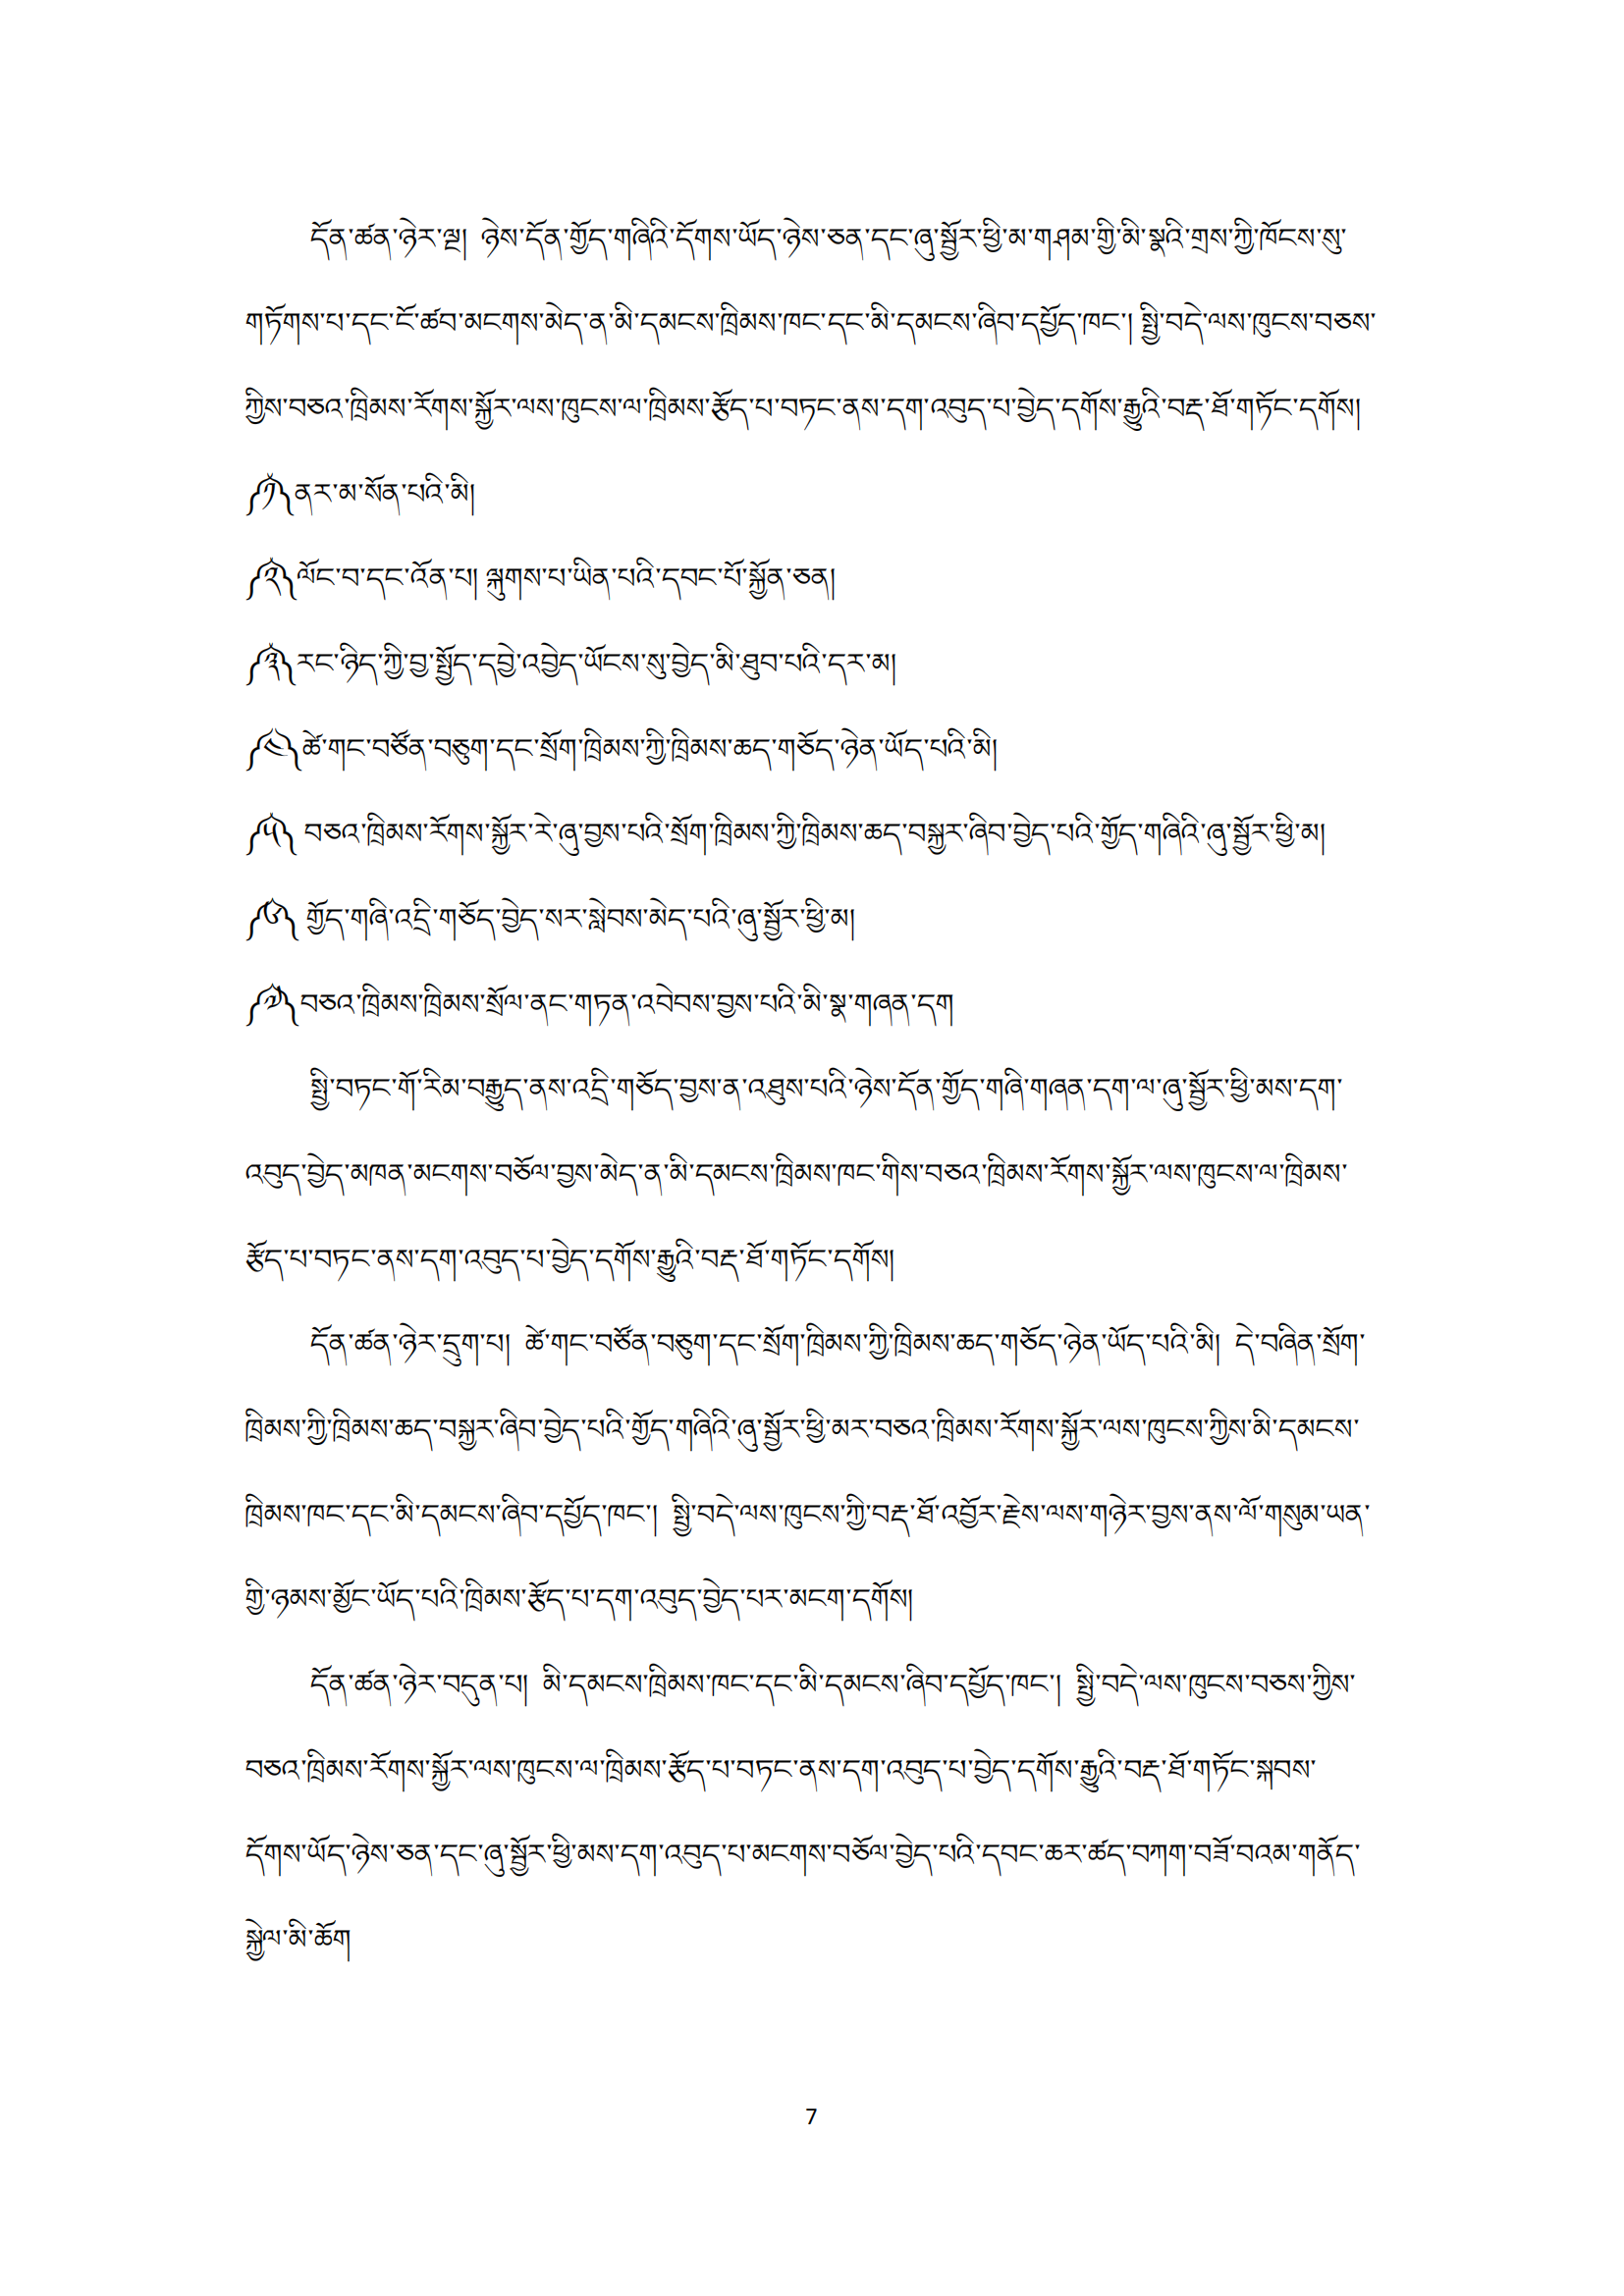 དོན་ཚན་ཉེར་ལྔ། ཉེས་དོན་གྱོད་གཞིའི་དོགས་ཡོད་ཉེས་ཅན་དང་ཞུ་སྦྱོར་ཕྱི་མ་གཤམ་གྱི་མི་སྣའི་གྲས་ཀྱི་ཁོངས་སུ་
གཏོགས་པ་དང་ངོ་ཚབ་མངགས་མེད་ན་མི་དམངས་ཁྲིམས་ཁང་དང་མི་དམངས་ཞིབ་དཔྱོད་ཁང་། སྤྱི་བདེ་ལས་ཁུངས་བཅས་
ཀྱིས་བཅའ་ཁྲིམས་རོགས་སྐྱོར་ལས་ཁུངས་ལ་ཁྲིམས་རྩོད་པ་བཏང་ནས་དག་འབུད་པ་བྱེད་དགོས་རྒྱུའི་བརྡ་ཐོ་གཏོང་དགོས།
༼༡༽ནར་མ་སོན་པའི་མི།
༼༢༽ལོང་བ་དང་འོན་པ། ལྐུགས་པ་ཡིན་པའི་དབང་པོ་སྐྱོན་ཅན།
༼༣༽རང་ཉིད་ཀྱི་བྱ་སྤྱོད་དབྱེ་འབྱེད་ཡོངས་སུ་བྱེད་མི་ཐུབ་པའི་དར་མ།
༼༤༽ཚེ་གང་བཙོན་བཅུག་དང་སྲོག་ཁྲིམས་ཀྱི་ཁྲིམས་ཆད་གཅོད་ཉེན་ཡོད་པའི་མི།
༼༥༽ བཅའ་ཁྲིམས་རོགས་སྐྱོར་རེ་ཞུ་བྱས་པའི་སྲོག་ཁྲིམས་ཀྱི་ཁྲིམས་ཆད་བསྐྱར་ཞིབ་བྱེད་པའི་གྱོད་གཞིའི་ཞུ་སྦྱོར་ཕྱི་མ།
༼༦༽ གྱོད་གཞི་འདྲི་གཅོད་བྱེད་སར་སླེབས་མེད་པའི་ཞུ་སྦྱོར་ཕྱི་མ།
༼༧༽བཅའ་ཁྲིམས་ཁྲིམས་སྲོལ་ནང་གཏན་འབེབས་བྱས་པའི་མི་སྣ་གཞན་དག
སྤྱི་བཏང་གོ་རིམ་བརྒྱུད་ནས་འདྲི་གཅོད་བྱས་ན་འཐུས་པའི་ཉེས་དོན་གྱོད་གཞི་གཞན་དག་ལ་ཞུ་སྦྱོར་ཕྱི་མས་དག་
འབུད་བྱེད་མཁན་མངགས་བཅོལ་བྱས་མེད་ན་མི་དམངས་ཁྲིམས་ཁང་གིས་བཅའ་ཁྲིམས་རོགས་སྐྱོར་ལས་ཁུངས་ལ་ཁྲིམས་
རྩོད་པ་བཏང་ནས་དག་འབུད་པ་བྱེད་དགོས་རྒྱུའི་བརྡ་ཐོ་གཏོང་དགོས།
དོན་ཚན་ཉེར་དྲུག་པ། ཚེ་གང་བཙོན་བཅུག་དང་སྲོག་ཁྲིམས་ཀྱི་ཁྲིམས་ཆད་གཅོད་ཉེན་ཡོད་པའི་མི། དེ་བཞིན་སྲོག་
ཁྲིམས་ཀྱི་ཁྲིམས་ཆད་བསྐྱར་ཞིབ་བྱེད་པའི་གྱོད་གཞིའི་ཞུ་སྦྱོར་ཕྱི་མར་བཅའ་ཁྲིམས་རོགས་སྐྱོར་ལས་ཁུངས་ཀྱིས་མི་དམངས་
ཁྲིམས་ཁང་དང་མི་དམངས་ཞིབ་དཔྱོད་ཁང་། སྤྱི་བདེ་ལས་ཁུངས་ཀྱི་བརྡ་ཐོ་འབྱོར་རྗེས་ལས་གཉེར་བྱས་ནས་ལོ་གསུམ་ཡན་
གྱི་ཉམས་མྱོང་ཡོད་པའི་ཁྲིམས་རྩོད་པ་དག་འབུད་བྱེད་པར་མངག་དགོས།
དོན་ཚན་ཉེར་བདུན་པ། མི་དམངས་ཁྲིམས་ཁང་དང་མི་དམངས་ཞིབ་དཔྱོད་ཁང་། སྤྱི་བདེ་ལས་ཁུངས་བཅས་ཀྱིས་
བཅའ་ཁྲིམས་རོགས་སྐྱོར་ལས་ཁུངས་ལ་ཁྲིམས་རྩོད་པ་བཏང་ནས་དག་འབུད་པ་བྱེད་དགོས་རྒྱུའི་བརྡ་ཐོ་གཏོང་སྐབས་
དོགས་ཡོད་ཉེས་ཅན་དང་ཞུ་སྦྱོར་ཕྱི་མས་དག་འབུད་པ་མངགས་བཅོལ་བྱེད་པའི་དབང་ཆར་ཚད་བཀག་བཟོ་བའམ་གནོད་
སྐྱེལ་མི་ཆོག
7